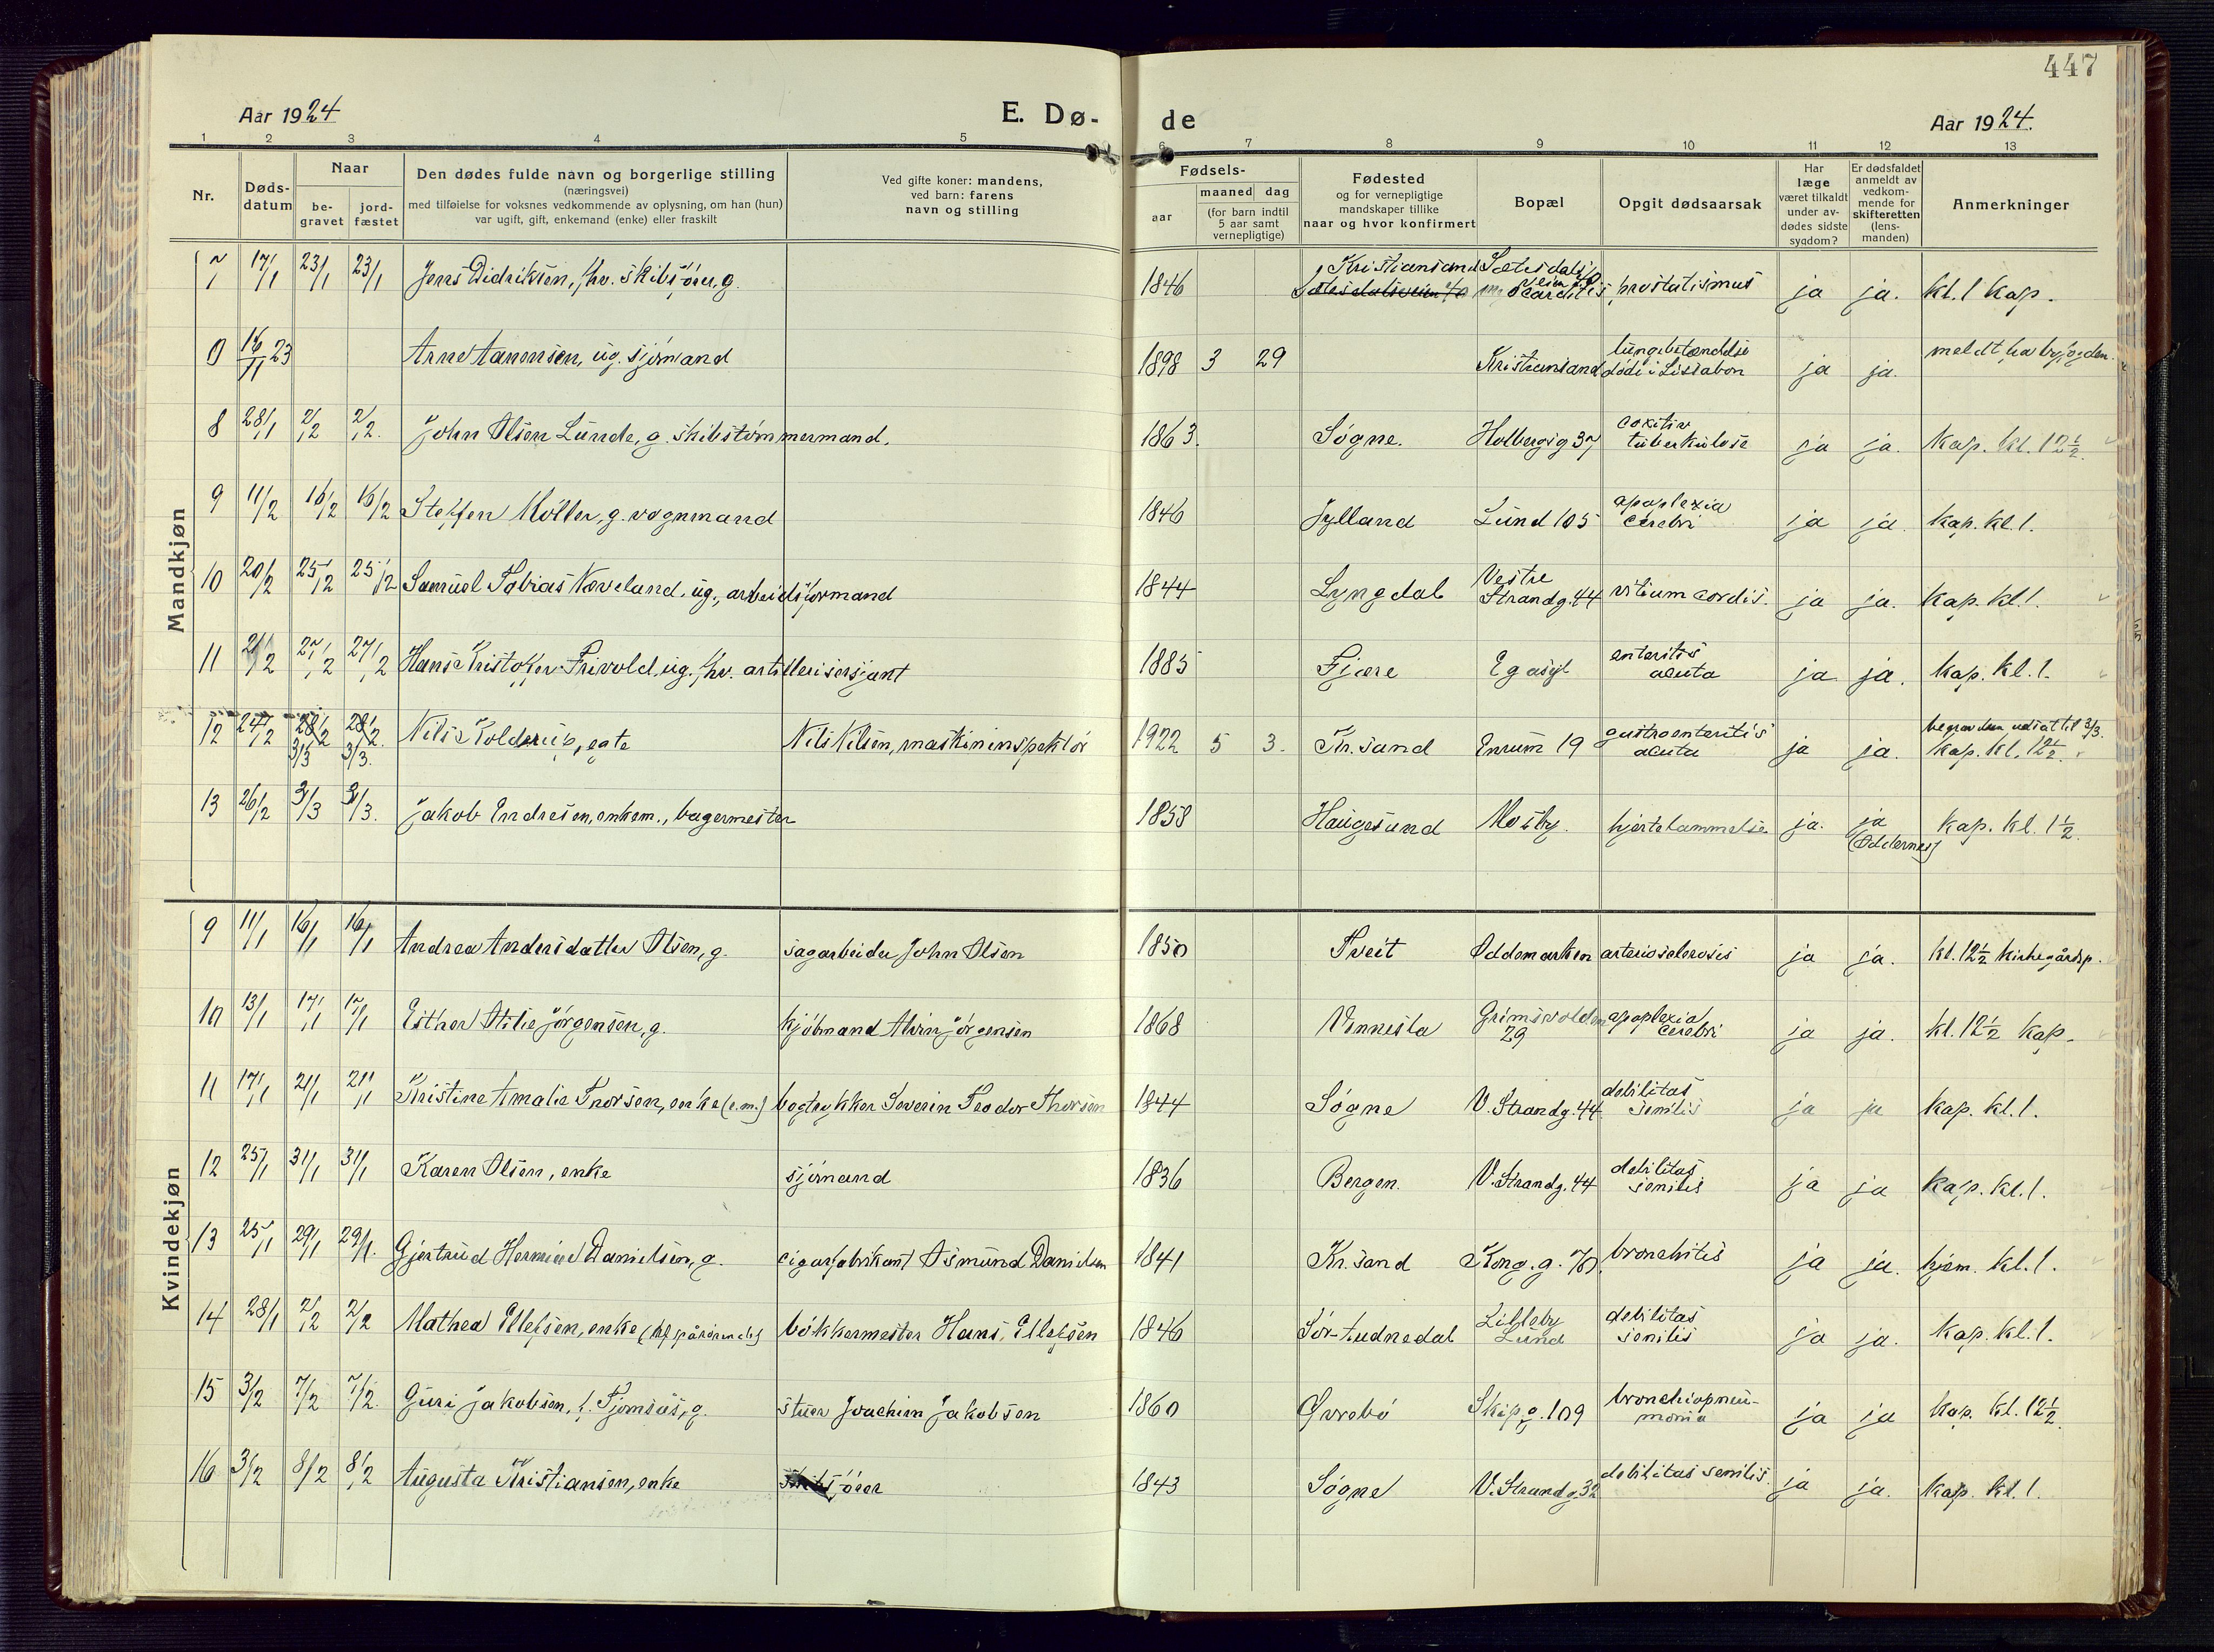 447
Aar 1924
E. Dø-
de
Aar 1924.
1 2 3 4 5 6 7 8 9 10 11 12 13
Nr.
Døds-
datum
Naar
be-
gravet
jord-
fæstet
Den dødes fulde navn og borgerlige stilling
(næringsvei)
med tilføielse for voksnes vedkommende av oplysning, om han (hun)
var ugift, gift, enkemand (enke) eller fraskilt
Ved gifte koner: mandens,
ved barn: farens
navn og stilling
Fødsels-
aar
maaned dag
(for barn indtil
5 aar samt
vernepligtige)
Fødested
og for vernepligtige
mandskaper tillike
naar og hvor konfirmert
Bopæl
Opgit dødsaarsak
Har
læge
været tilkaldt
under av-
dødes sidste
sygdom?
Er dødsfaldet
anmeldt av
vedkom-
mende for
skifteretten
(lens-
manden)
Anmerkninger
Mandkjøn
7 17/1 23/1 23/1 Jens Didriksen, fhv. skibsfører, g. 1846 Kristiansand Sætesdalsveien 40 prostatismus ja ja. kl. 1 kap.
0 16/11 23 Arne Aanensen, ug. sjømand 1898 3 29 Kristiansand lungebetændelse døde i Lissabon ja ja.
8 28/1 2/2 2/2. John Olsen Lunde, g. skibstømmermand. 1863. Søgne. Holbergsg 37 tuberkulose ja ja. Kap. kl. 12 1/2.
9 11/2 16/2 16/2 Steffen Møller, g. vognmand 1846 Jylland Lund 105 apoplexia cerebri ja ja. Kap. kl. 1.
10 20/2 25/2 25/2 Samuel Tobias Næveland, ug., arbeidsformand 1844 Lyngdal Vestre Strandg. 44 vitium cordis. ja ja. Kap. kl. 1.
11 21/2 27/2 27/2 Hans Kristofer Frivold, ug. fhv. artillerisersjant 1885 Fjære Eg asyl enteritis acuta ja ja. Kap. kl. 1.
12 24/2 28/2 3/3 28/2. 3/3. Nils Kolderup, egte Nils Nilsen, maskininspektør 1922 5 3. Kr.sand Enrum 19 gastroenteritis acuta ja ja. begravelsen udsat til 3/3. Kap. kl. 12 1/2.
13 26/2 3/3 3/3. Jakob Endresen, enkem., bagermester 1858 Haugesund Mosby. hjertelammelse ja. ja (Oddernes) Kap. kl. 1 1/2.
Kvindekjøn
9 11/1 16/1 16/1 Andrea Andersdatter Olsen, g. sagarbeider John Olsen 1850 Tveit Oddemarken arteriosclerosis ja ja. kl. 12 1/2 kirkegårdsp.
10 13/1 17/1 17/1 Esther Otilie Jørgensen, g. kjøbmand Alvin Jørgensen 1868 Vennesla Grimsvolden 29 apoplexia cerebri ja ja. kl. 12 1/2 kap.
11 17/1 21/1 21/1 Kristine Amalie Thorsen, enke (e.m.) bogtrykker Severin Teodor Thorsen 1844 Søgne V. Strandg. 44 debilitas senilis ja ja Kap. kl. 1.
12 25/1 31/1 31/1 Karen Olsen, enke sjømand 1836 Bergen. V. Strandg. 44 debilitas senilis ja ja Kap. kl. 1.
13 25/1 29/1 29/1. Gjertrud Hermine Danielsen, g. cigarfabrikant Osmund Danielsen 1841 Kr. sand Kong. g. bronchitis ja ja. hjem. kl. 1.
14 28/1 2/2 2/2 Mathea Ellefsen, enke bøkkermester Hans Ellefsen 1846 Sør-Audnedal Lilleby Lund debilitas senilis ja ja. Kap. kl. 1.
15 3/2 7/2 7/2. Guri Jakobsen, f. Tjomsås, g. stuer Joachim Jakobsen 1860 Øvrebø Skip.g. 109 bronchiopneumonia ja ja Kap. kl. 12 1/2
16 3/2 8/2 8/2 Augusta Kristiansen, enke skibsfører 1843 Søgne V. Strandg. 32 debilitas senilis ja ja. Kap. kl. 1.